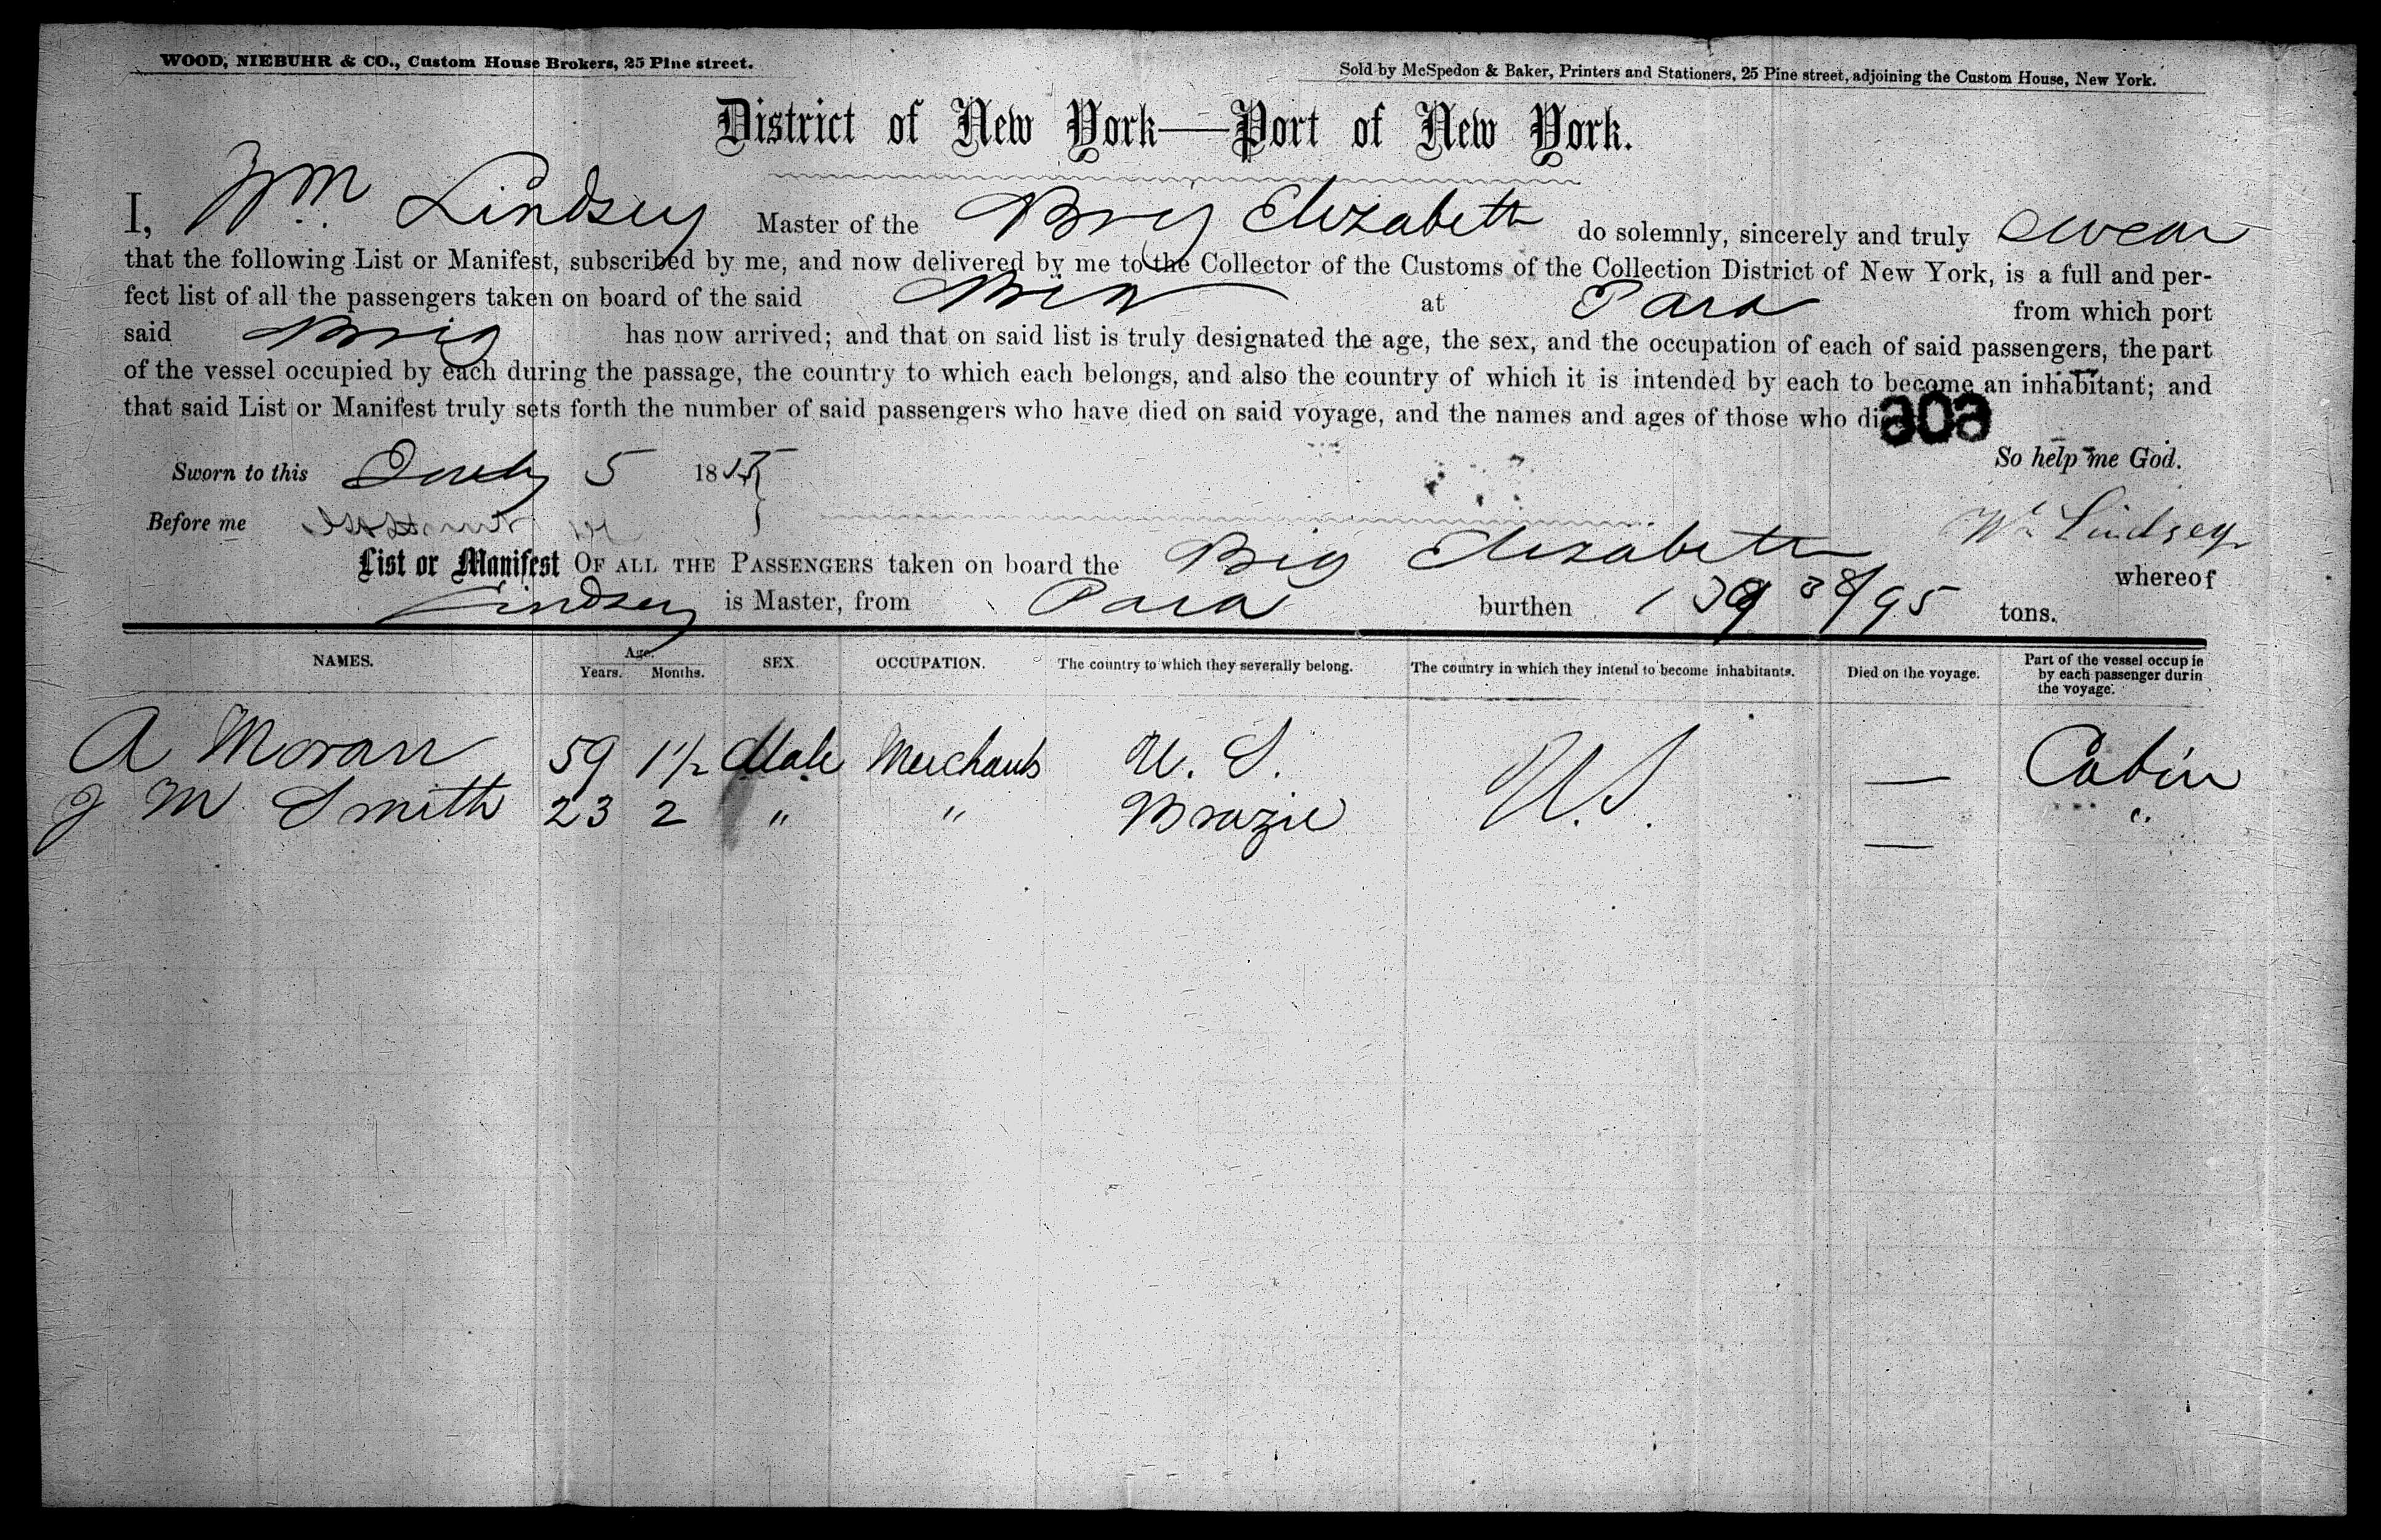 WOOD, NIEBUHR & CO., Custom House Brokers, 25 Pine street.
Sold by McSpedon & Baker, Printers and Stationers, 25 Pine street, adjoining the Custom House, New York.
District of New York—Port of New York.
I, Wm. Lindsey Master of the Brig Elizabeth do solemnly, sincerely and truly swear
that the following List or Manifest, subscribed by me, and now delivered by me to the Collector of the Customs of the Collection District of New York, is a full and per-
fect list of all the passengers taken on board of the said Brig at Para from which port
said Brig has now arrived; and that on said list is truly designated the age, the sex, and the occupation of each of said passengers, the part
of the vessel occupied by each during the passage, the country to which each belongs, and also the country of which it is intended by each to become an inhabitant; and
that said List or Manifest truly sets forth the number of said passengers who have died on said voyage, and the names and ages of those who
So help me God.
Sworn to this July 5 18
Before me
Wm Lindsey
List or Manifest OF ALL THE PASSENGERS taken on board the Brig Elizabeth whereof
Lindsey is Master, from Para burthen 139 38/95 tons.
NAMES. Age. Years. Months. SEX. OCCUPATION. The country to which they severally belong. The country in which they intend to become inhabitants. Died on the voyage. Part of the vessel occupie by each passenger durin the voyage.
A Moran 59 1 1/2 Male Merchants U. S. U.S. — Cabin
J M Smith 23 2 " " Brazil — "